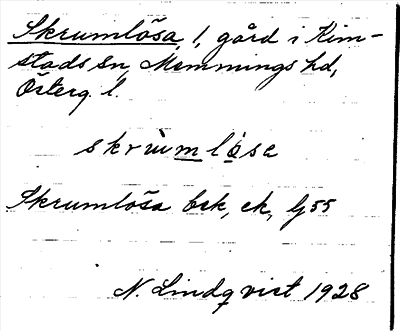 Skrumlösa, 1, gård i Kim-
stads sn, Memmings hd,
Österg. l.
skrùmlòsa
Skrumlösa bsk, ek, Gj 55
N. Lindqvist 1928